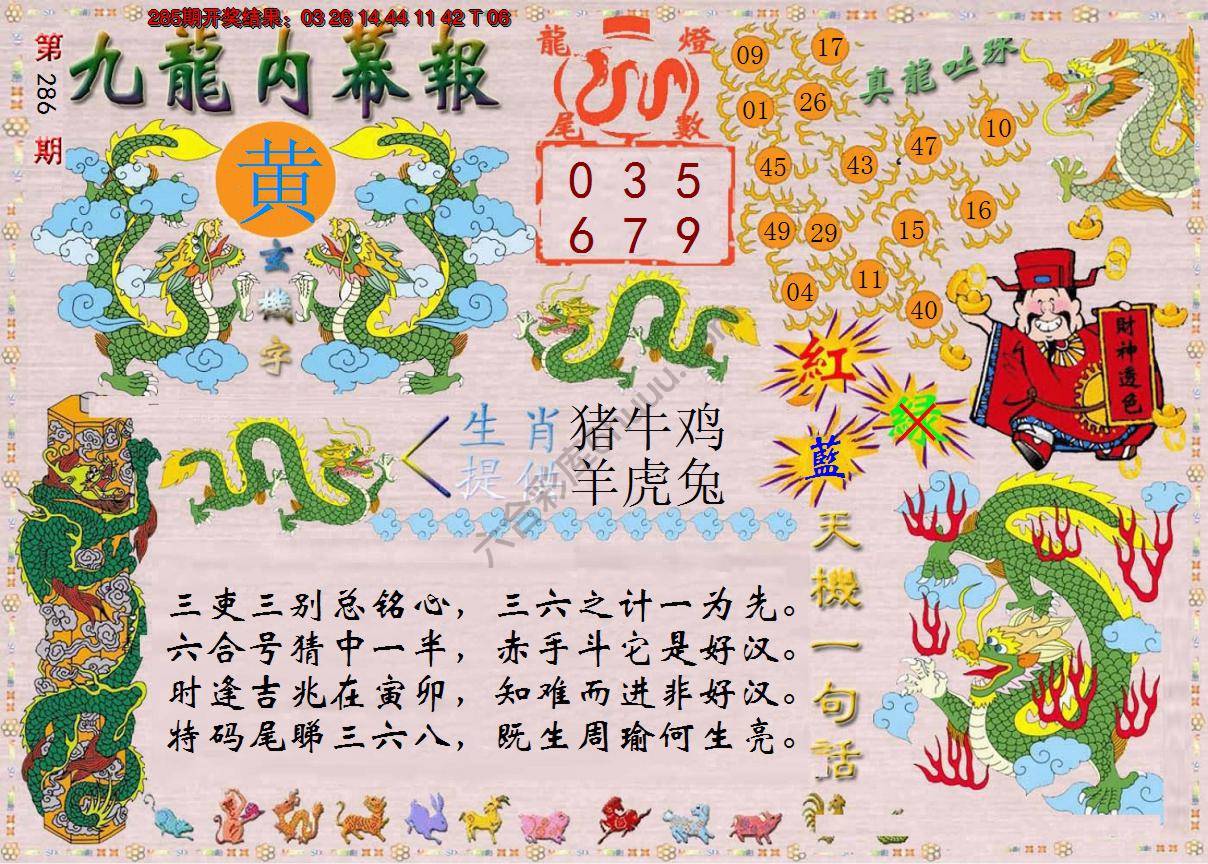 285期开奖结果：03 26 14 44 11 42 T 06
第286期
九龍内幕報
黄
玄機字
龍燈
尾數
0 3 5
6 7 9
真龍吐珠
09
17
01
26
47
10
45
43
16
49
29
15
11
04
40
財神透色
紅
绿
藍
生肖 猪牛鸡
提供 羊虎兔
天機一句话
三吏三别总铭心，三六之计一为先。
六合号猜中一半，赤手斗它是好汉。
时逢吉兆在寅卯，知难而进非好汉。
特码尾睇三六八，既生周瑜何生亮。